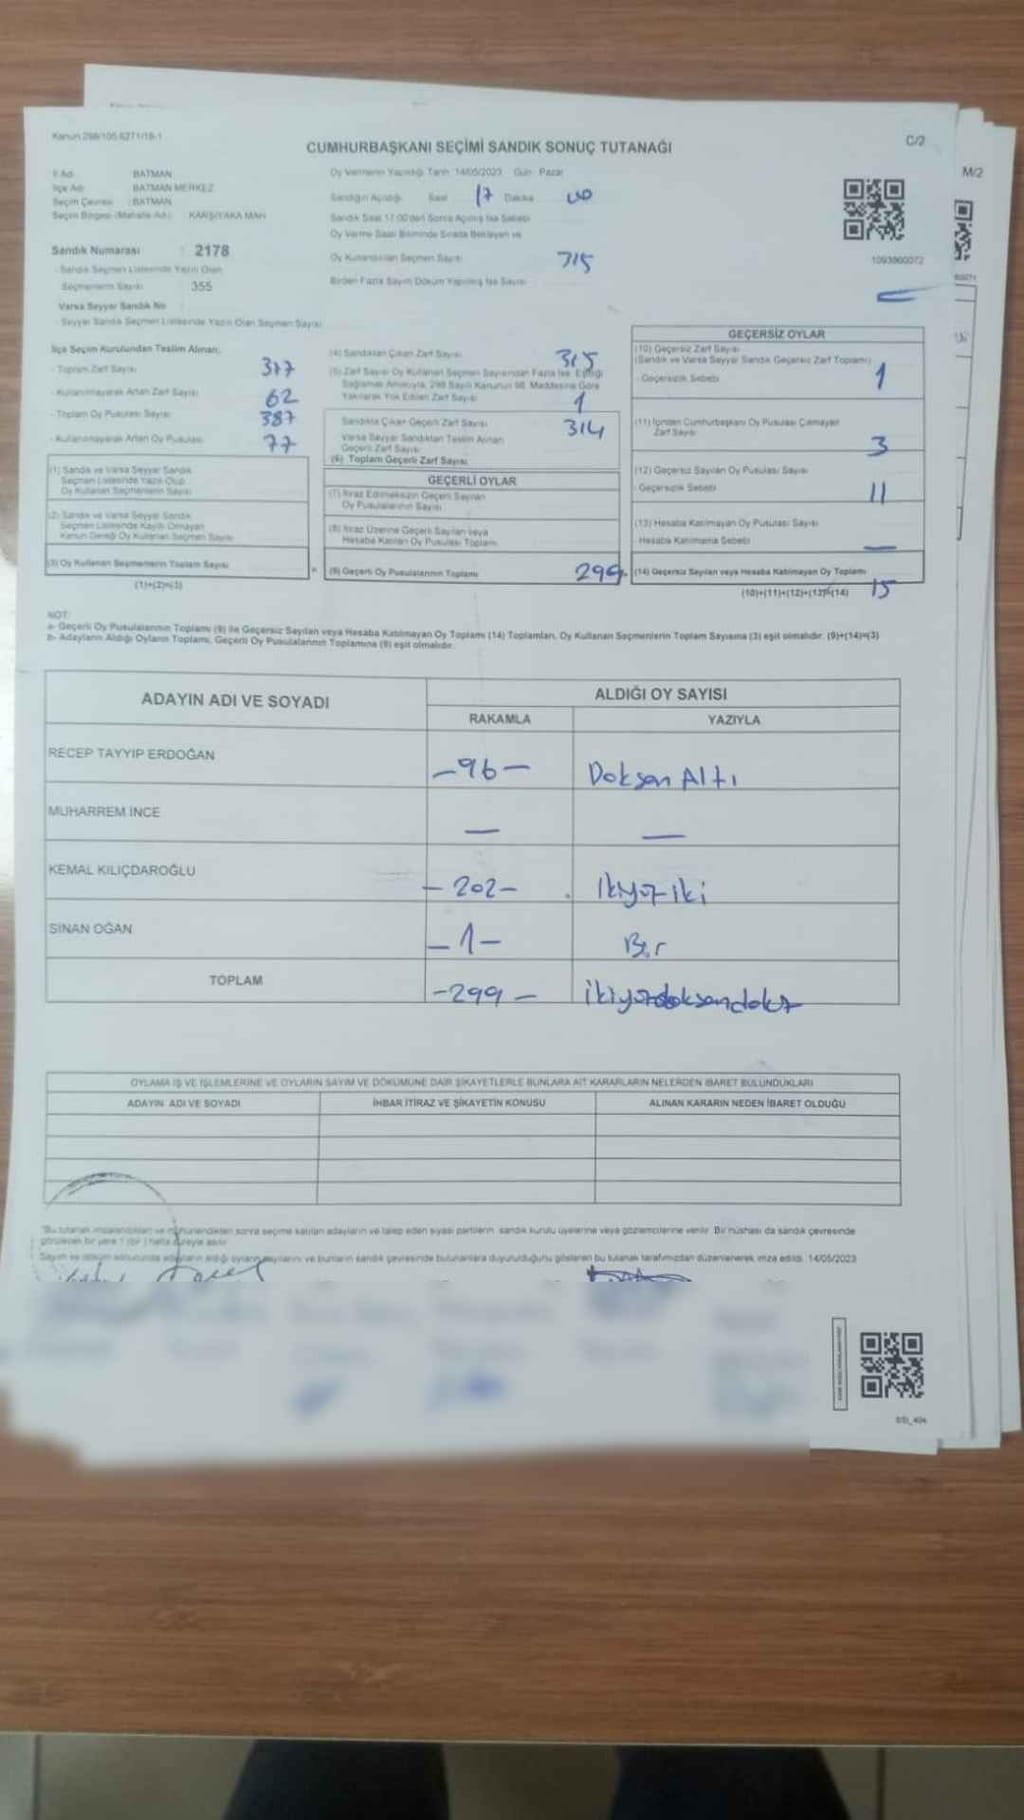 Kanun 298/105.6271/18-1
C/2
M/2
CUMHURBAŞKANI SEÇİMİ SANDIK SONUÇ TUTANAĞI
İl Adı : BATMAN
İlçe Adı : BATMAN MERKEZ
Seçim Çevresi : BATMAN
Seçim Bölgesi (Mahalle Adı) : KARŞIYAKA MAH
Sandık Numarası : 2178
- Sandık Seçmen Listesinde Yazılı Olan
Seçmenlerin Sayısı 355
Varsa Seyyar Sandık No
- Seyyar Sandık Seçmen Listesinde Yazılı Olan Seçmen Sayısı
Oy Vermenin Yapıldığı Tarih 14/05/2023 Gün Pazar
Sandığın Açıldığı Saat 17 Dakika 00
Sandık Saat 17:00'den Sonra Açılmış İse Sebebi
Oy Verme Saati Bitiminde Sırada Bekleyen ve
Oy Kullandırılan Seçmen Sayısı 715
Birden Fazla Sayım Döküm Yapılmış İse Sayısı
1093860072
İlçe Seçim Kurulundan Teslim Alınan;
- Toplam Zarf Sayısı 377
- Kullanılmayarak Artan Zarf Sayısı 62
- Toplam Oy Pusulası Sayısı 387
- Kullanılmayarak Artan Oy Pusulası 77
(1) Sandık ve Varsa Seyyar Sandık
Seçmen Listesinde Yazılı Olup
Oy Kullanan Seçmenlerin Sayısı
(2) Sandık ve Varsa Seyyar Sandık
Seçmen Listesinde Kayıtlı Olmayan
Kanun Gereği Oy Kullanan Seçmen Sayısı
(3) Oy Kullanan Seçmenlerin Toplam Sayısı
(1)+(2)=(3)
(4) Sandıktan Çıkan Zarf Sayısı 315
(5) Zarf Sayısı Oy Kullanan Seçmen Sayısından Fazla İse, Eşitliği
Sağlamak Amacıyla, 298 Sayılı Kanunun 98. Maddesine Göre
Yakılarak Yok Edilen Zarf Sayısı 1
Sandıkta Çıkan Geçerli Zarf Sayısı 314
Varsa Seyyar Sandıktan Teslim Alınan
Geçerli Zarf Sayısı
(6) Toplam Geçerli Zarf Sayısı
GEÇERLİ OYLAR
(7) İtiraz Edilmeksizin Geçerli Sayılan
Oy Pusulalarının Sayısı
(8) İtiraz Üzerine Geçerli Sayılan veya
Hesaba Katılan Oy Pusulası Toplamı
(9) Geçerli Oy Pusulalarının Toplamı 299
GEÇERSİZ OYLAR
(10) Geçersiz Zarf Sayısı
(Sandık ve Varsa Seyyar Sandık Geçersiz Zarf Toplamı) 1
- Geçersizlik Sebebi
(11) İçinden Cumhurbaşkanı Oy Pusulası Çıkmayan
Zarf Sayısı 3
(12) Geçersiz Sayılan Oy Pusulası Sayısı
- Geçersizlik Sebebi 11
(13) Hesaba Katılmayan Oy Pusulası Sayısı
- Hesaba Katılmama Sebebi —
(14) Geçersiz Sayılan veya Hesaba Katılmayan Oy Toplamı
(10)+(11)+(12)+(13)=(14) 15
NOT:
a- Geçerli Oy Pusulalarının Toplamı (9) ile Geçersiz Sayılan veya Hesaba Katılmayan Oy Toplamı (14) Toplamları, Oy Kullanan Seçmenlerin Toplam Sayısına (3) eşit olmalıdır. (9)+(14)=(3)
b- Adayların Aldığı Oyların Toplamı, Geçerli Oy Pusulalarının Toplamına (9) eşit olmalıdır.
ADAYIN ADI VE SOYADI ALDIĞI OY SAYISI
RAKAMLA YAZIYLA
RECEP TAYYIP ERDOĞAN –96– Doksan Altı
MUHARREM İNCE — —
KEMAL KILIÇDAROĞLU –202– İkiyüziki
SİNAN OĞAN –1– Bir
TOPLAM –299– ikiyüzdoksandokuz
OYLAMA İŞ VE İŞLEMLERİNE VE OYLARIN SAYIM VE DÖKÜMÜNE DAİR ŞİKAYETLERLE BUNLARA AİT KARARLARIN NELERDEN İBARET BULUNDUKLARI
ADAYIN ADI VE SOYADI İHBAR İTİRAZ VE ŞİKAYETİN KONUSU ALINAN KARARIN NEDEN İBARET OLDUĞU
*Bu tutanak imzalandıktan ve mühürlendikten sonra seçime katılan adayların ve talep eden siyasi partilerin sandık kurulu üyelerine veya gözlemcilerine verilir. Bir nüshası da sandık çevresinde
görülecek bir yere 1 (bir) hafta süreyle asılır.
Sayım ve döküm sonucunda adayların aldığı oyların sayılarını ve bunların sandık çevresinde bulunanlara duyurulduğunu gösteren bu tutanak tarafımızdan düzenlenerek imza edildi. 14/05/2023